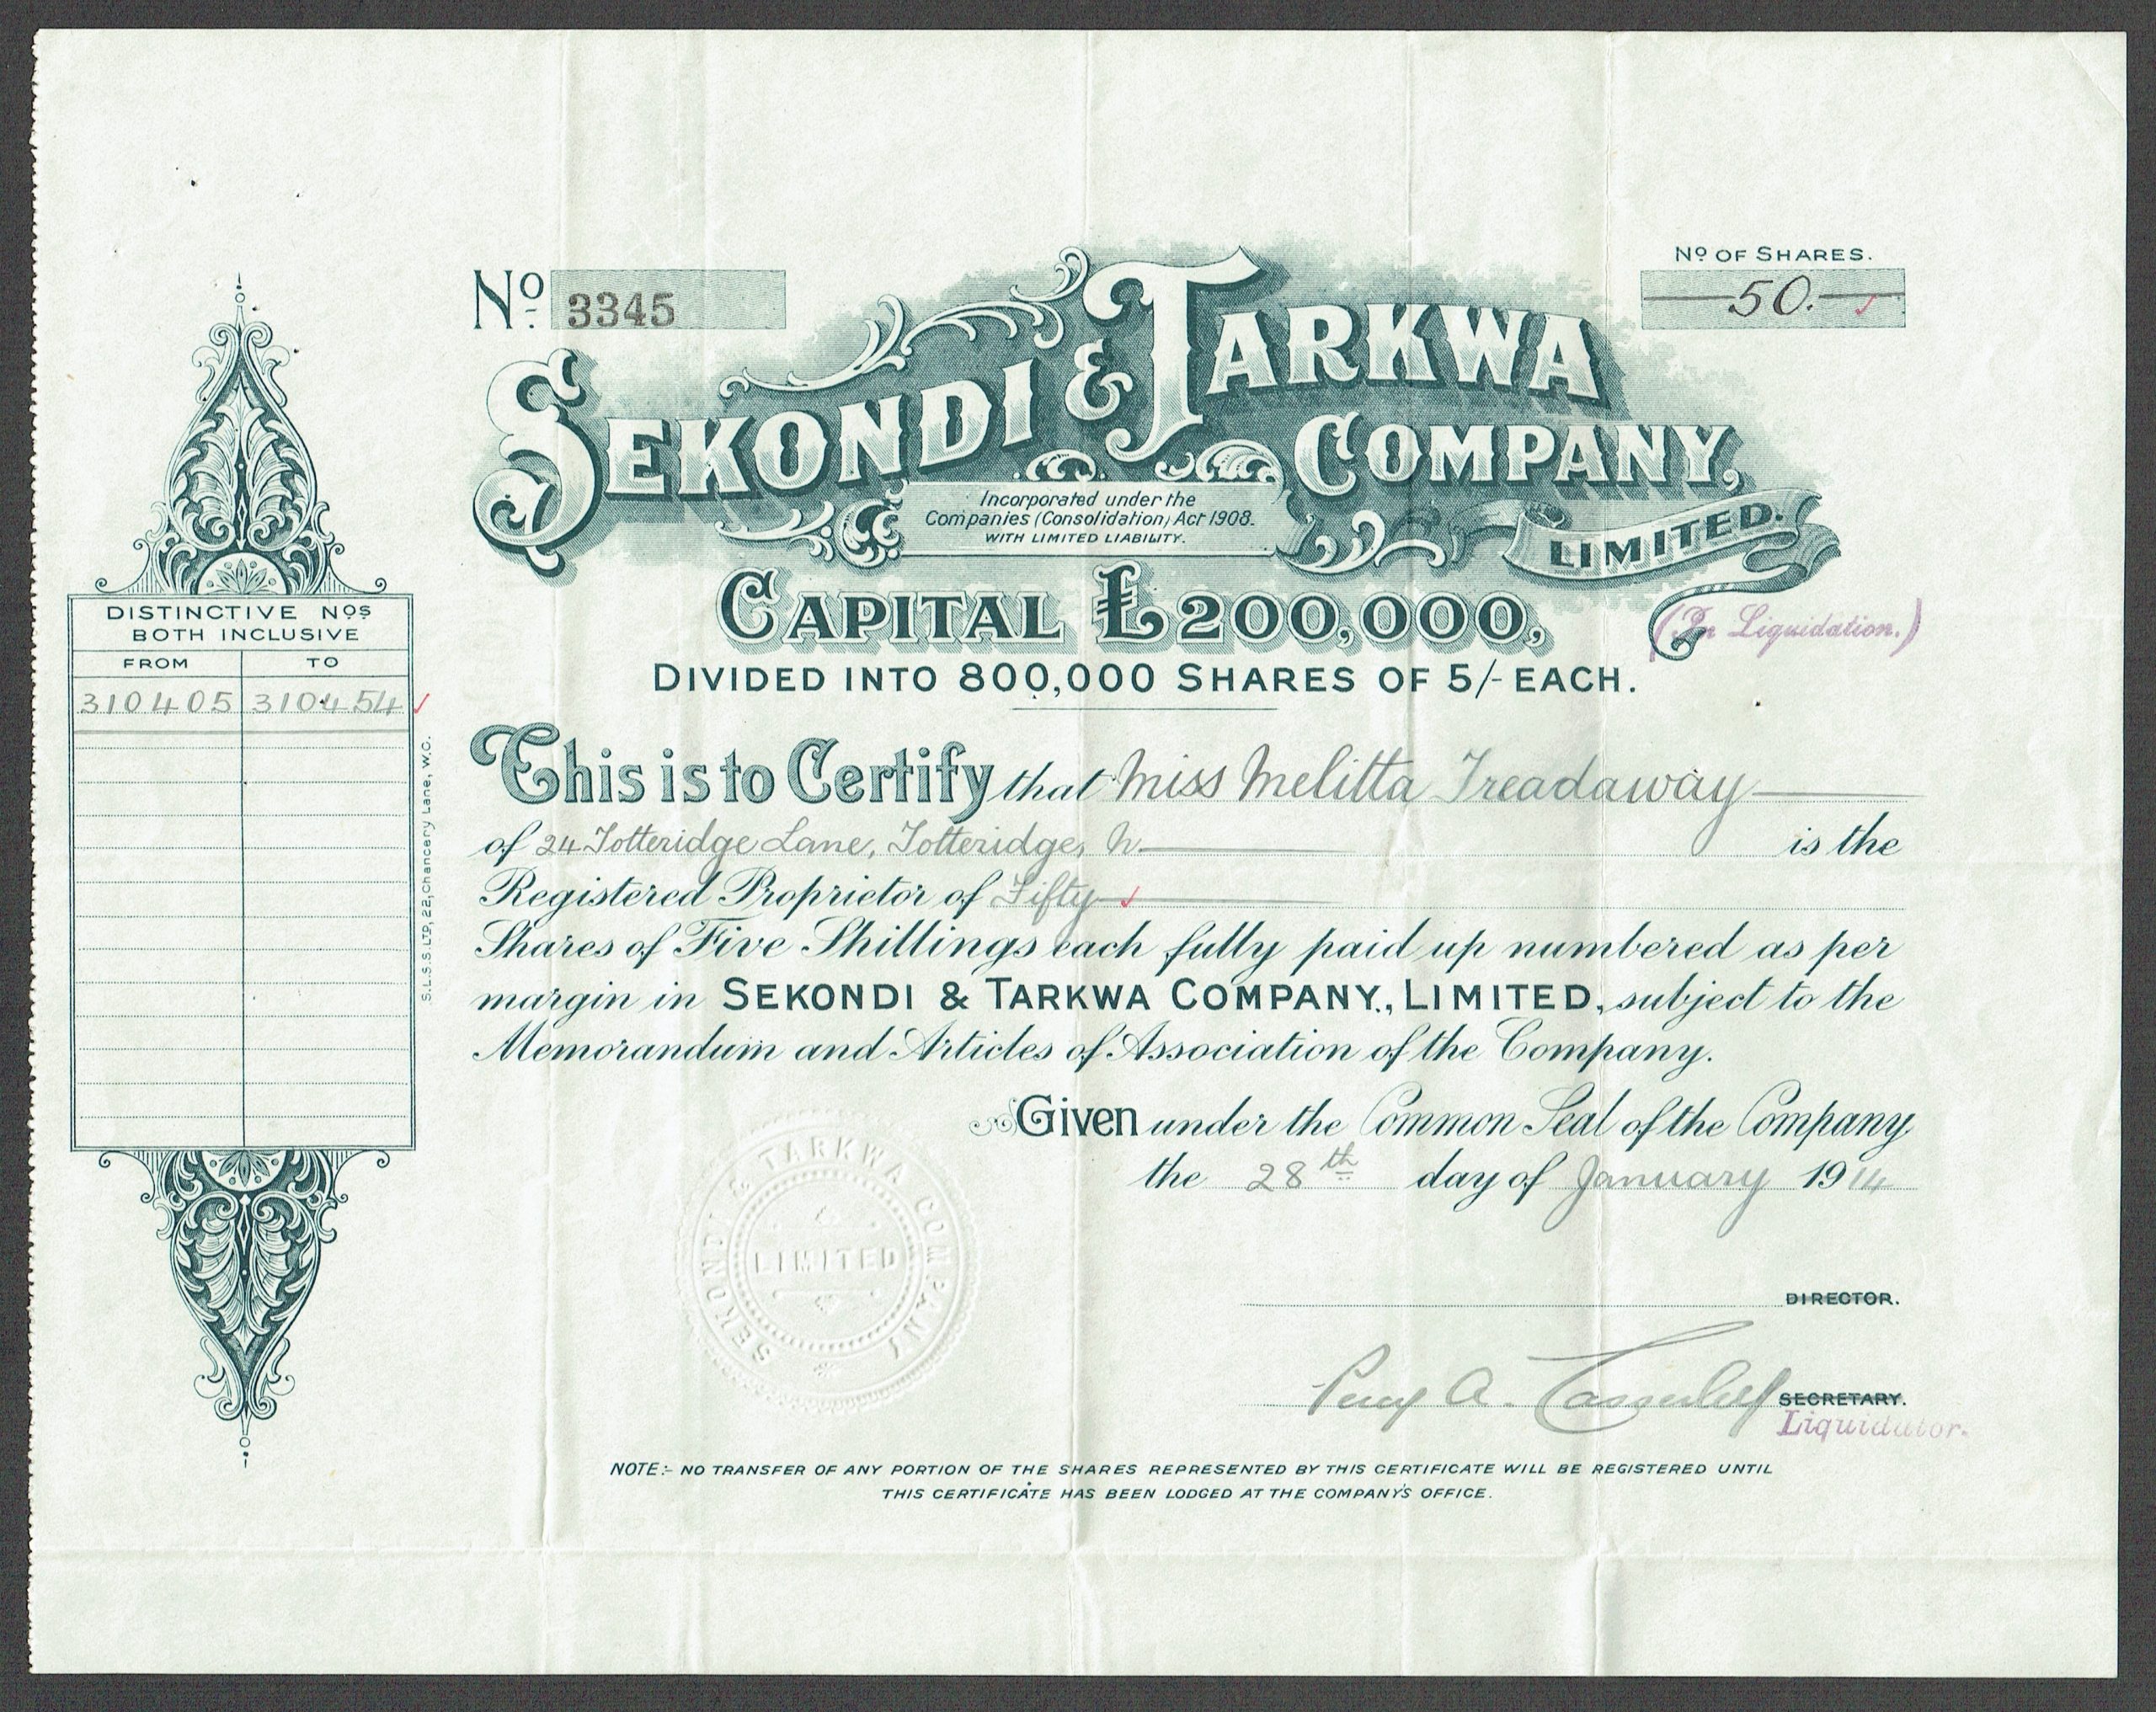 Nº 3345
Nº OF SHARES.
50.
SEKONDI & TARKWA
COMPANY,
LIMITED.
Incorporated under the
Companies (Consolidation) Act 1908.
WITH LIMITED LIABILITY.
CAPITAL £200,000,
(In Liquidation.)
DIVIDED INTO 800,000 SHARES OF 5/- EACH.
DISTINCTIVE Nºs
BOTH INCLUSIVE
FROM TO
310405 310454
S.L.S.S. LTD, 22, Chancery Lane, W.C.
This is to Certify that Miss Melitta Treadaway
of 24 Totteridge Lane, Totteridge, N. is the
Registered Proprietor of Fifty
Shares of Five Shillings each fully paid up numbered as per
margin in SEKONDI & TARKWA COMPANY, LIMITED, subject to the
Memorandum and Articles of Association of the Company.
Given under the Common Seal of the Company
the 28th day of January 1914
SEKONDI & TARKWA COMPANY
LIMITED
DIRECTOR.
Percy A. SECRETARY.
Liquidator.
NOTE:- NO TRANSFER OF ANY PORTION OF THE SHARES REPRESENTED BY THIS CERTIFICATE WILL BE REGISTERED UNTIL
THIS CERTIFICATE HAS BEEN LODGED AT THE COMPANY'S OFFICE.